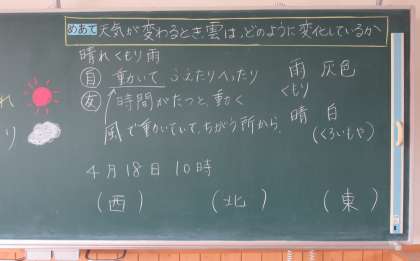 めあて 天気が変わるとき、雲は、どのように変化しているか
晴れくもり雨
自 動いて ふえたりへったり
友 時間がたつと、動く
風で動いていて、ちがう所から、
雨 灰色
くもり
晴 白
(くろいもや)
れ
り
4月18日 10時
(西) (北) (東)